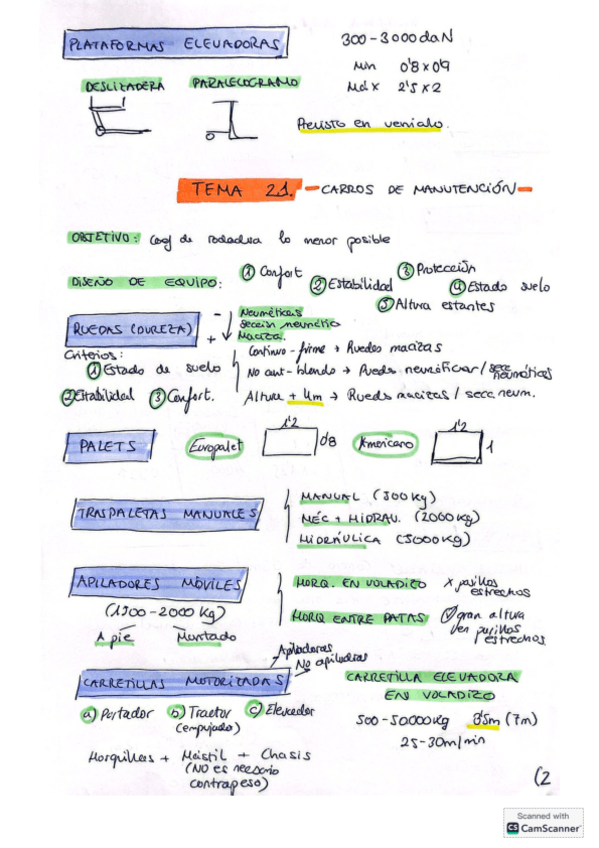 PLATAFORMAS ELEVADORAS
300-3000daN
Mín 0'8 x 0'9
Máx 2'5 x 2
DESLIZADERA PARALELOGRAMO
Previsto en
TEMA 21. - CARROS DE MANUTENCIÓN -
OBJETIVO: Coef de rodadura lo menor posible
DISEÑO DE EQUIPO: ① Confort ② Estabilidad ③ Protección ④ Estado suelo
⑤ Altura estantes
RUEDAS (DUREZA) - + Neumáticas
Sección neumático
Maciza.
Criterios:
① Estado de suelo
② Estabilidad ③ Confort.
Continuo - firme → Ruedas macizas
No cont - blando → Rueda / secc neumáticas
Altura + 4m → Rueda maciza / secc neum.
PALETS Europalet 1'2 0'8 Americano 1'2 1
TRASPALETAS MANUALES
MANUAL (500kg)
MÉC + HIDRAU. (2000kg)
HIDRÁULICA (3000kg)
APILADORES MÓVILES
(1500-2000 kg)
A pie Montado
HORQ. EN VOLADIZO x pasillos estrechos
HORQ ENTRE PATAS gran altura
en pasillos
estrechos
CARRETILLAS MOTORIZADAS
Apiladoras
No apiladoras
a) Portador b) Tractor c) Elevador
(empujado)
Horquillas + Mástil + Chasis
(NO es necesario
contrapeso)
CARRETILLA ELEVADORA
EN VOLADIZO
500-50000kg 3'5m (7m)
25-30m/min
(2
Scanned with
CS CamScanner